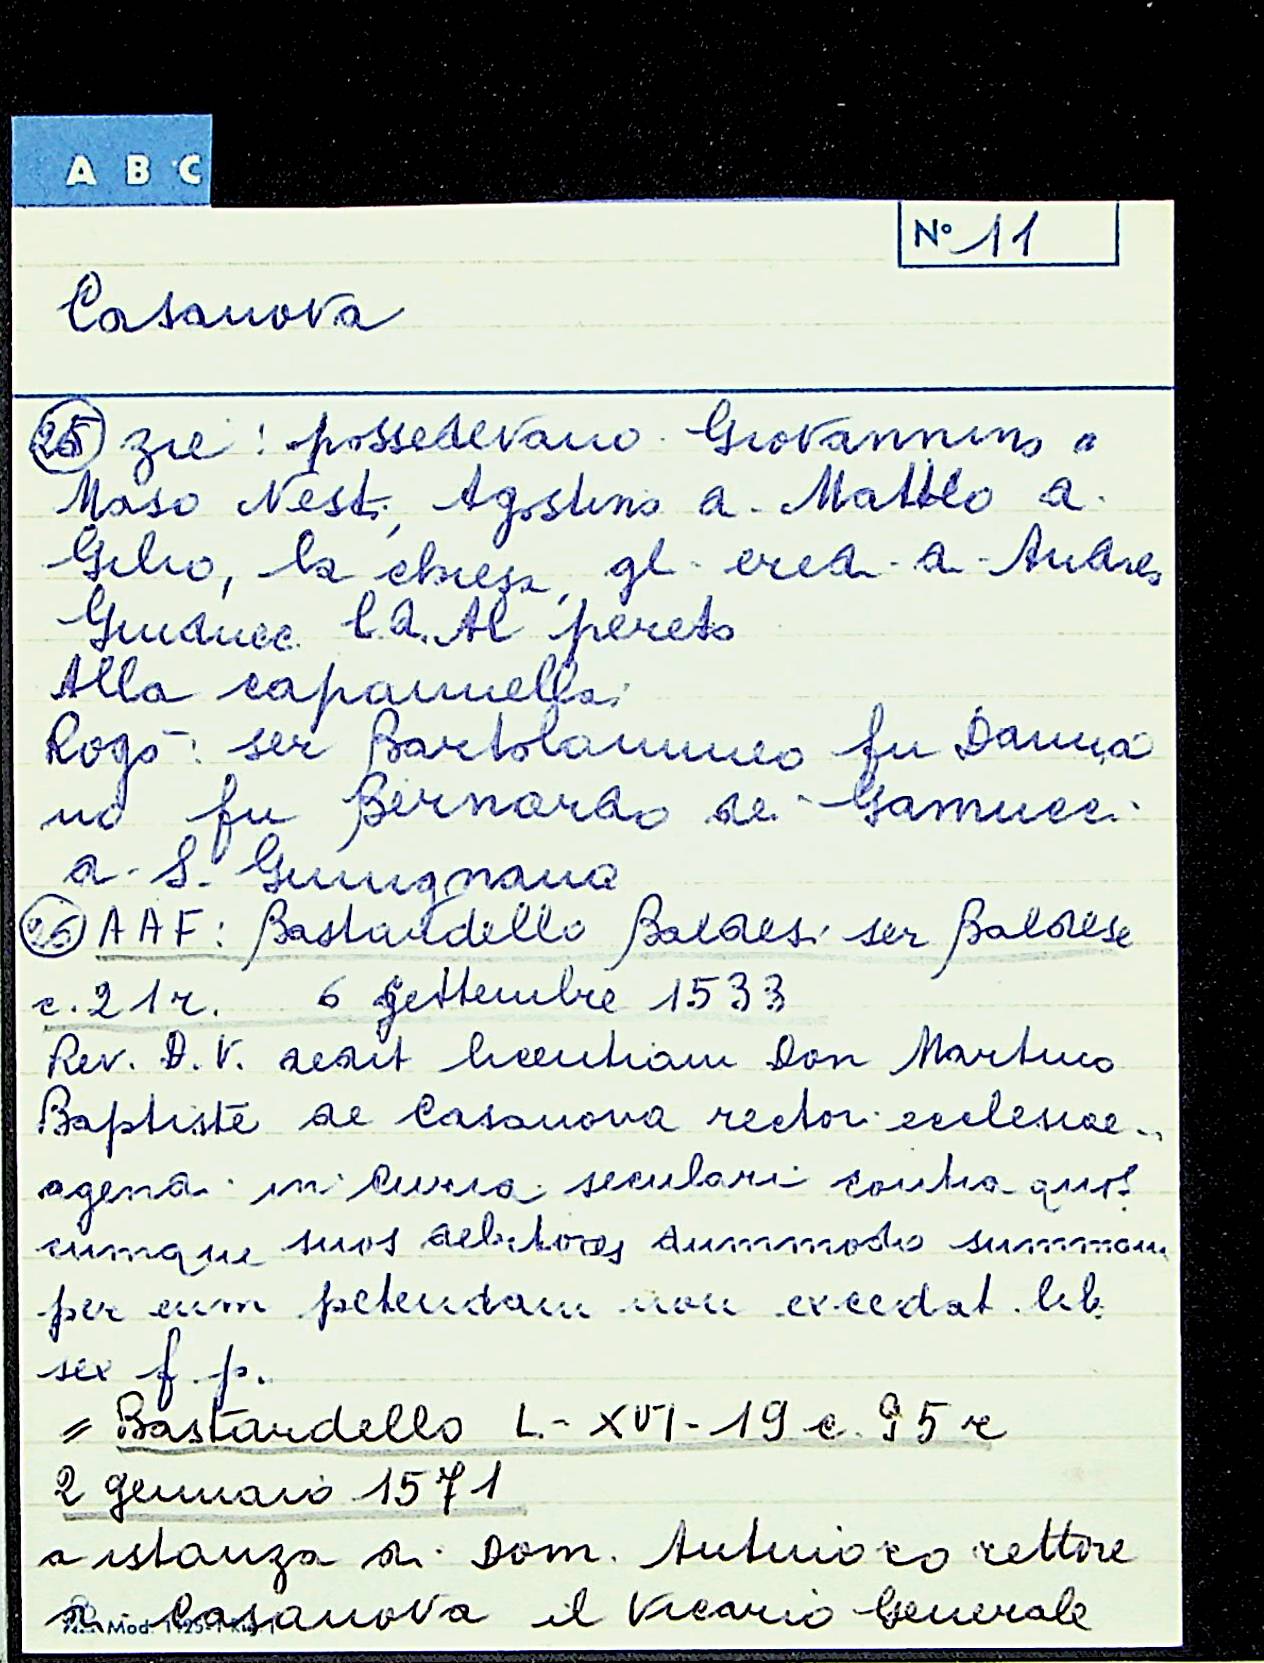 A B C
N° 11
Casanova
25 zie: possedevano Giovannino di
Maso Nesti, Agostino di Matteo di
Gilio, la chiesa, gli eredi di Andrea
Guiducci l.d. Al pereto
Alla capannella;
Rogò: ser Bartolammeo fu Damia
no fu Bernardo dei Gamucci
di S. Gimignano
26 AAF: Bastardello Baldesi ser Baldese
c. 21 r. 6 Settembre 1533
Rev. D. V. dedit licentiam Don Martino
Baptiste de Casanova rectori ecclesiae..
agendi in curia seculari contra quos
cumque suos debitores dummodo summam
per eum petendam non excedat lib.
sex f. p.
= Bastardello L - XVI - 19 c. 95 r
2 gennaio 1571
a istanza di Dom. rettore
di Casanova il Vicario Generale